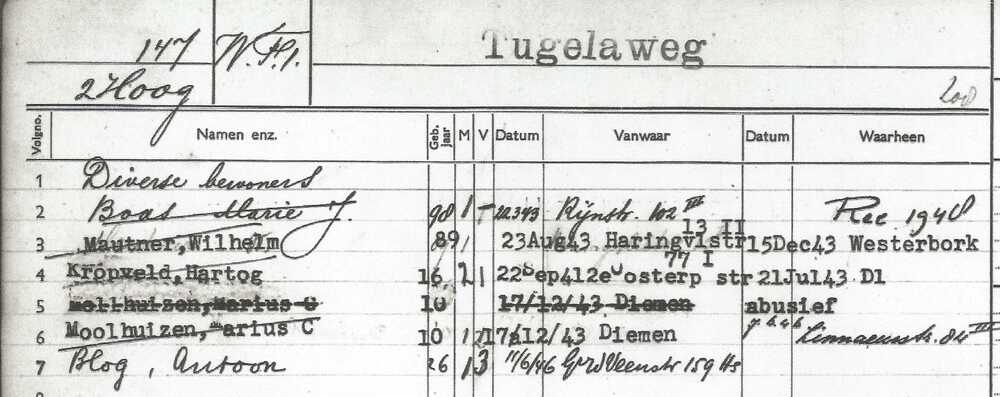 147 W.H. Tugelaweg
2 Hoog
Volgno. Namen enz. Geb. jaar M V Datum Vanwaar Datum Waarheen
1 Diverse bewoners
2 Boas Marie J. 98 1 - 22343 Rijnstr. 102 III Rec 1948
13 II
3 Mautner, Wilhelm 89 1 23Aug43 Haringvlstr 15Dec43 Westerbork
77 I
4 Kropveld, Hartog 16 2 1 22Sep41 2e Oosterp str 21Jul43 Dl
5 Mollhuizen, Marius C 10 17/12/43 Diemen abusief
6 Moolhuizen, Marius C 10 17/12/43 Diemen Linnaeusstr. 84 III
7 Blog, Antoon 26 1 3 11/6/46 Veenstr 159 Hs